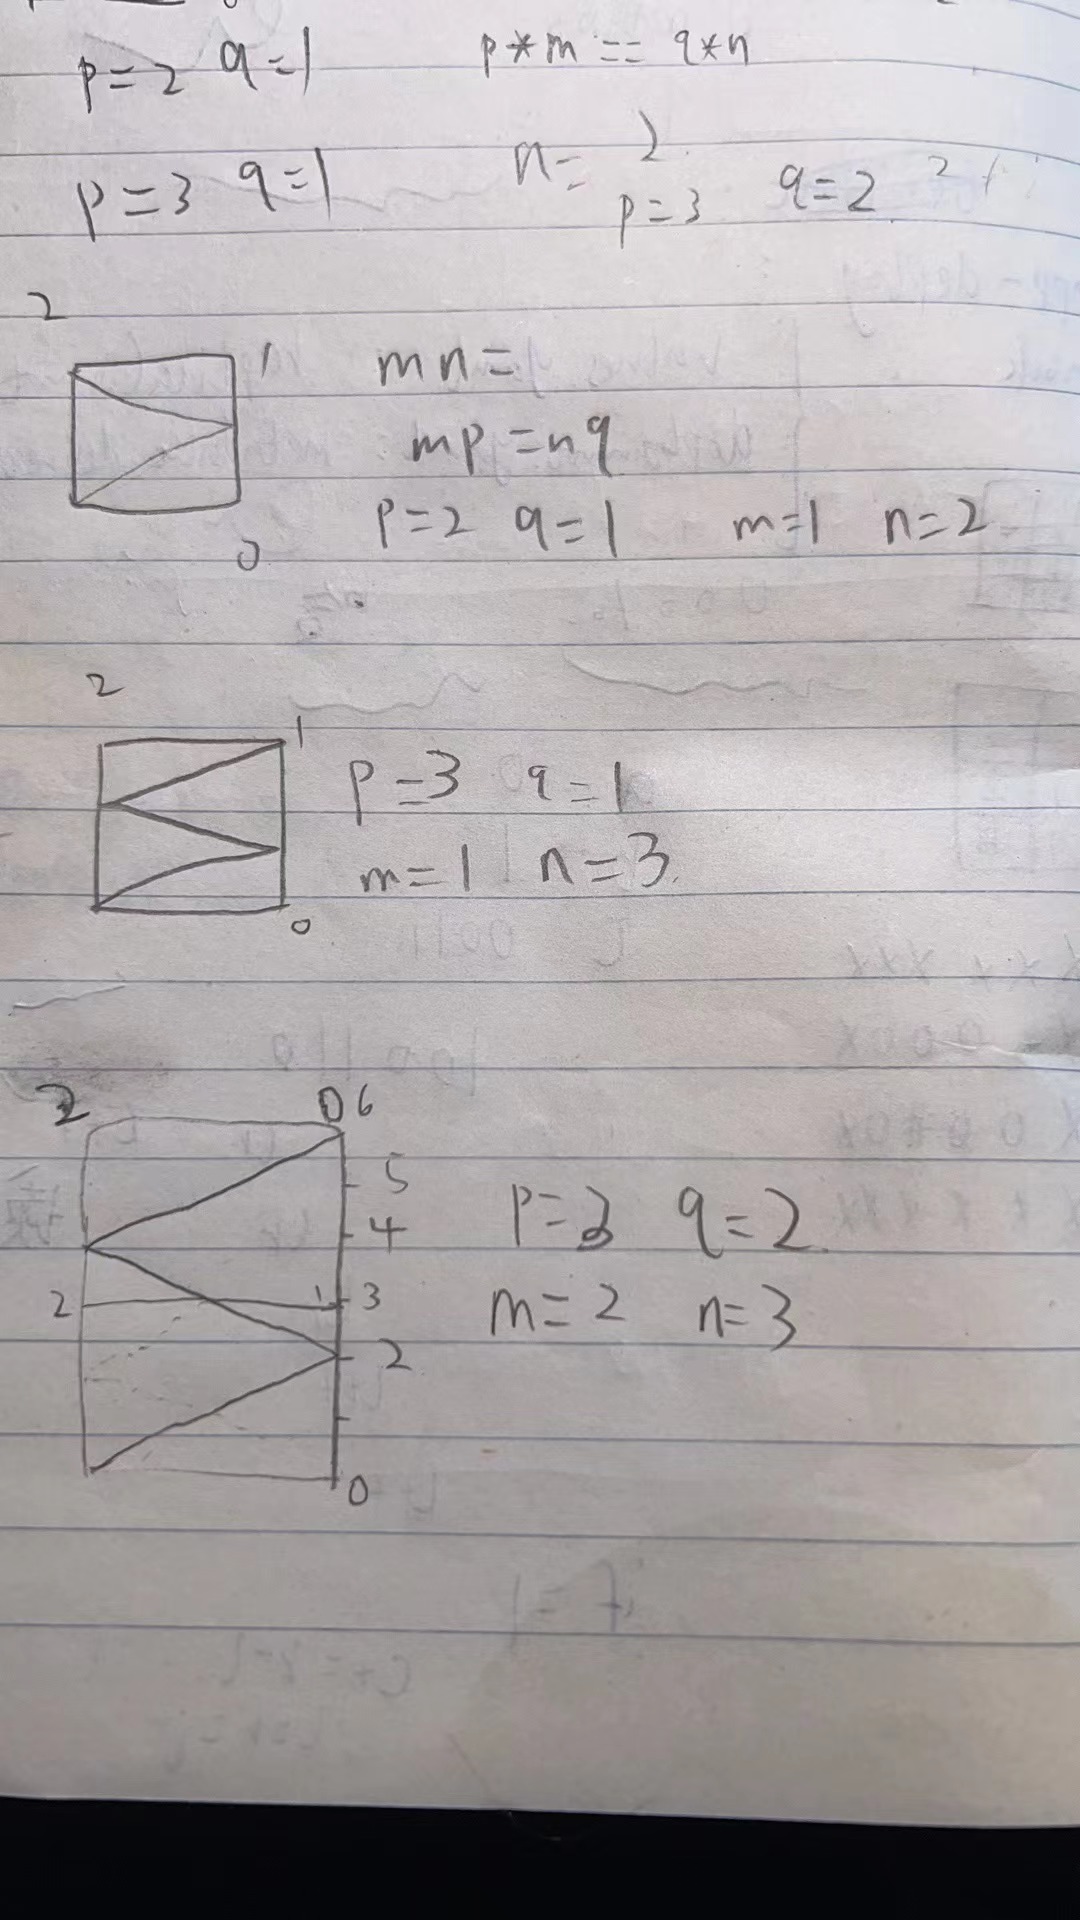 p=2 q=1 p*m == q*n
p=3 q=1 n= 2
p=3 q=2 2
2
1 mn=
mp=nq
p=2 q=1 m=1 n=2
0
2
1
p=3 q=1
m=1 n=3
0
2 0 6
5
4 q=2
2 1 3 m=2 n=3
2
0